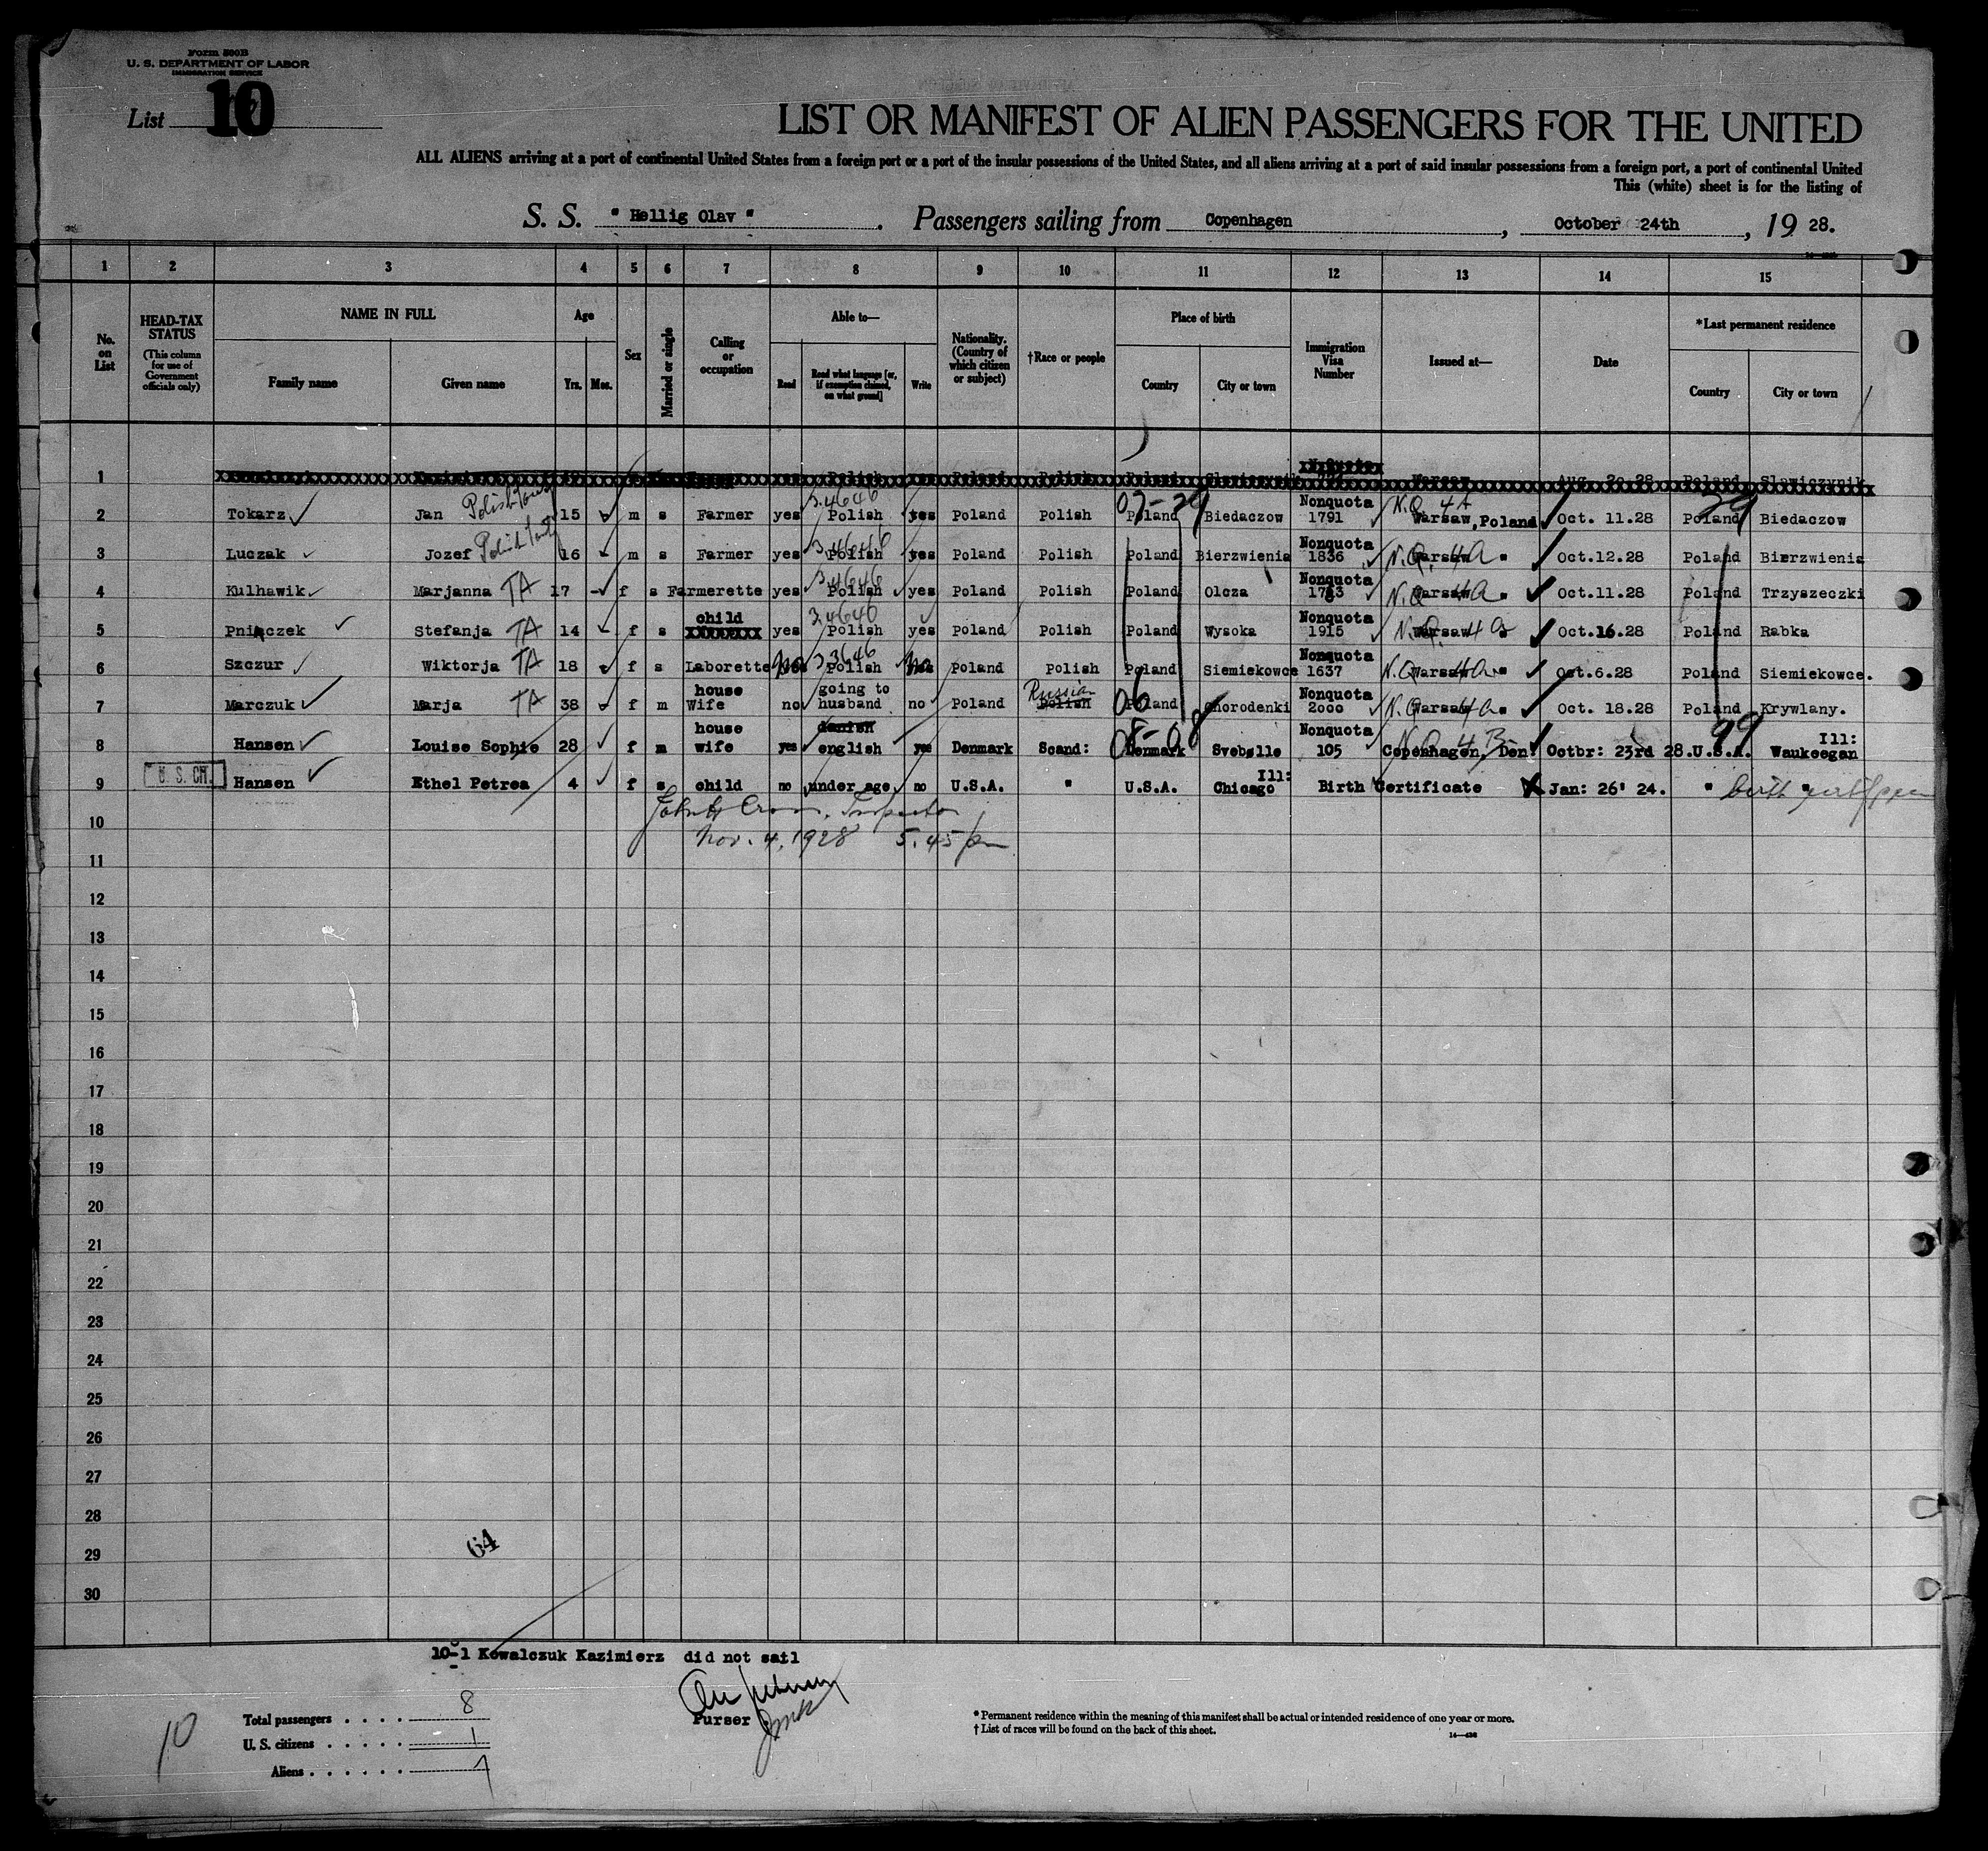 Form 500B
U. S. DEPARTMENT OF LABOR
IMMIGRATION SERVICE
List 10
LIST OR MANIFEST OF ALIEN PASSENGERS FOR THE UNITED
ALL ALIENS arriving at a port of continental United States from a foreign port or a port of the insular possessions of the United States, and all aliens arriving at a port of said insular possessions from a foreign port, a port of continental United
This (white) sheet is for the listing of
S. S. "Hellig Olav". Passengers sailing from Copenhagen, October 24th, 19 28.
1 2 3 4 5 6 7 8 9 10 11 12 13 14 15
No. on List
HEAD-TAX STATUS (This column for use of Government officials only)
NAME IN FULL
Family name Given name
Age
Yrs. Mos.
Sex
Married or single
Calling or occupation
Able to—
Read Read what language [or, if exemption claimed, on what ground] Write
Nationality. (Country of which citizen or subject)
†Race or people
Place of birth
Country City or town
Immigration Visa Number
Issued at—
Date
*Last permanent residence
Country City or town
1 Farmer yes Polish yes Poland Polish Poland Warsaw Aug. 20.28 Poland
2 Tokarz Jan 15 m s Farmer yes 34646 Polish yes Poland Polish 07-29 Poland Biedaczow Nonquota 1791 N.Q. 4A Warsaw, Poland Oct. 11.28 29 Poland Biedaczow
3 Luczak Jozef 16 m s Farmer yes 34646 Polish yes Poland Polish Poland Bierzwienia Nonquota 1836 N.Q. 4a Warsaw " Oct.12.28 Poland Bierzwienia
4 Kulhawik Marjanna TA 17 f s Farmerette yes 34646 Polish yes Poland Polish Poland Olcza Nonquota N.Q. 4a Warsaw " Oct.11.28 Poland Trzyszeczki
5 Pniaczek Stefanja TA 14 f s child yes 34646 Polish yes Poland Polish Poland Wysoka Nonquota 1915 N.Q. 4a Warsaw " Oct.16.28 Poland Rabka
6 Szczur Wiktorja TA 18 f s Laborette No 33646 Polish No Poland Polish Poland Siemiekowce Nonquota 1637 N.Q. 4a Warsaw " Oct.6.28 Poland Siemiekowce.
7 Marczuk Marja TA 38 f m house Wife no going to husband no Poland Polish Russian 06 Poland Chorodenki Nonquota 2000 N.Q. 4a Warsaw " Oct. 18.28 Poland Krywlany.
8 Hansen Louise Sophie 28 f m house wife yes danish english yes Denmark Scand: 08-08 Denmark Svebølle Nonquota 105 N.Q. 4B Copenhagen, Den. Octbr: 23rd 28. 99 U.S.A. Ill: Waukeegan
9 U. S. CIT. Hansen Ethel Petrea 4 f s child no under age no U.S.A. " U.S.A. Ill: Chicago Birth Certificate Jan: 26' 24. " "
Inspector
Nov. 4, 1928 5.45 pm
10
11
12
13
14
15
16
17
18
19
20
21
22
23
24
25
26
27
28
29
30
64
10-1 Kowalczuk Kazimierz did not sail
Purser
10
Total passengers . . . . 8
U. S. citizens . . . . . 1
Aliens . . . . . . 7
* Permanent residence within the meaning of this manifest shall be actual or intended residence of one year or more.
† List of races will be found on the back of this sheet.